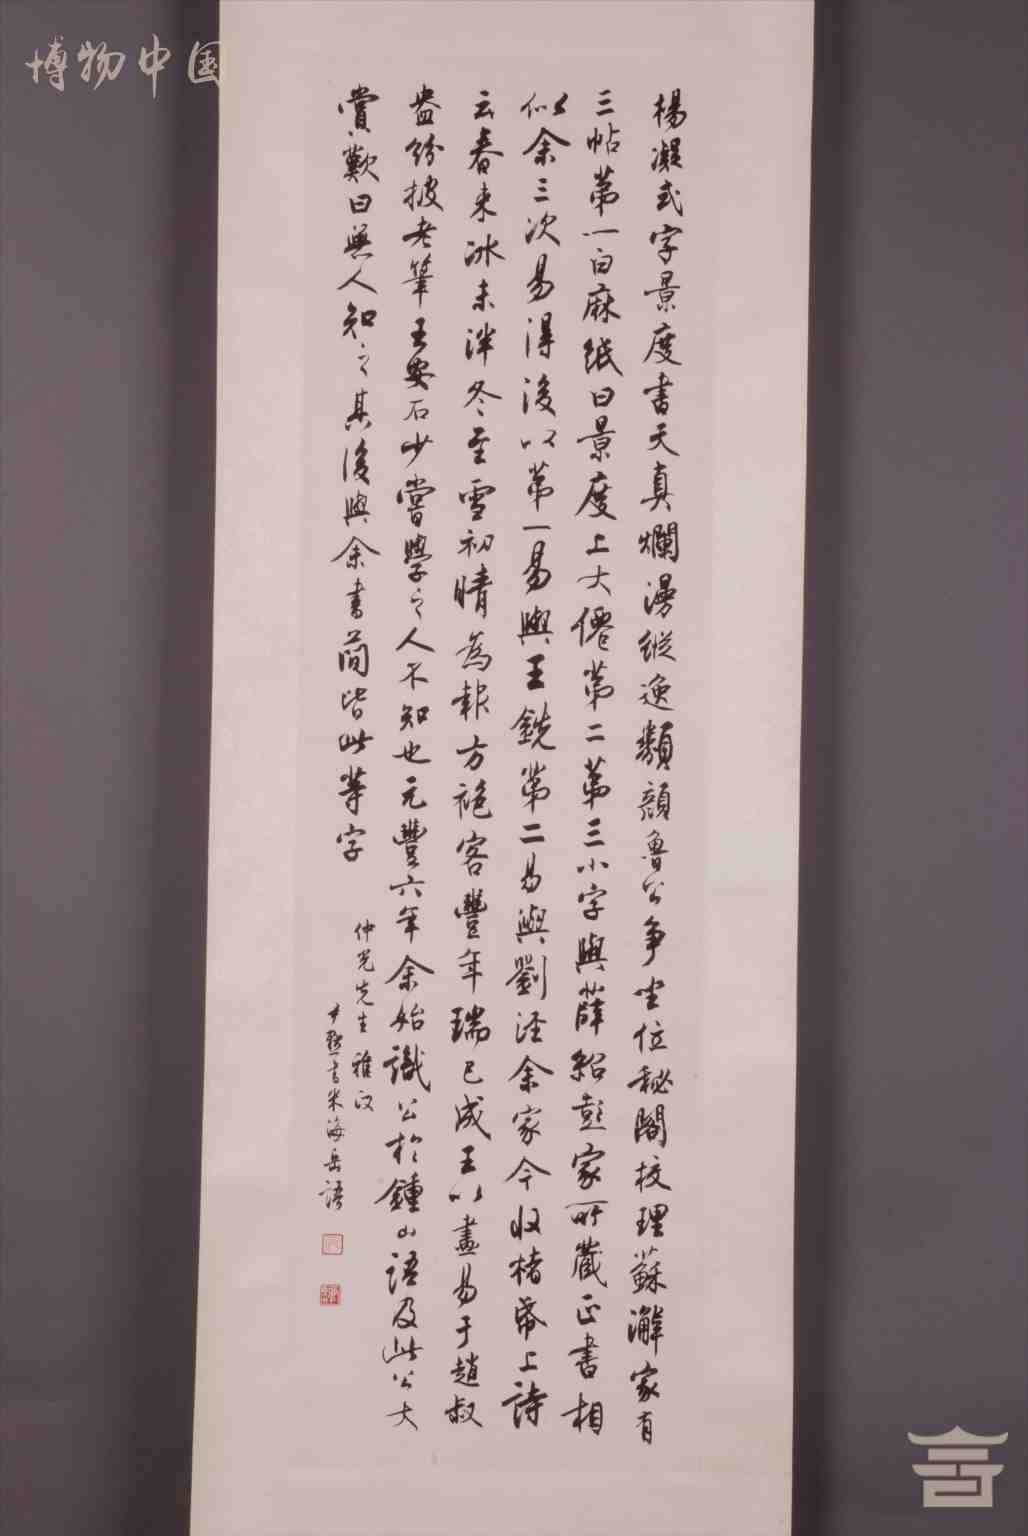 博物中国
楊凝式字景度書天真爛漫縱逸類顏魯公爭坐位秘閣校理蘇澥家有
三帖第一白麻紙曰景度上大僊第二第三小字與薛紹彭家所藏正書相
似余三次易得後以第一易與王銑第二易與劉涇余家今收楮帋上詩
云春来冰未泮冬至雪初晴為報方袍客豐年瑞已成王以畫易于趙叔
盎紛披老筆王安石少嘗學之人不知也元豐六年余始識公於鍾山語及此公大
賞歎曰無人知之其後與余書簡皆此等字
仲光先生雅政
尹默書米海岳語